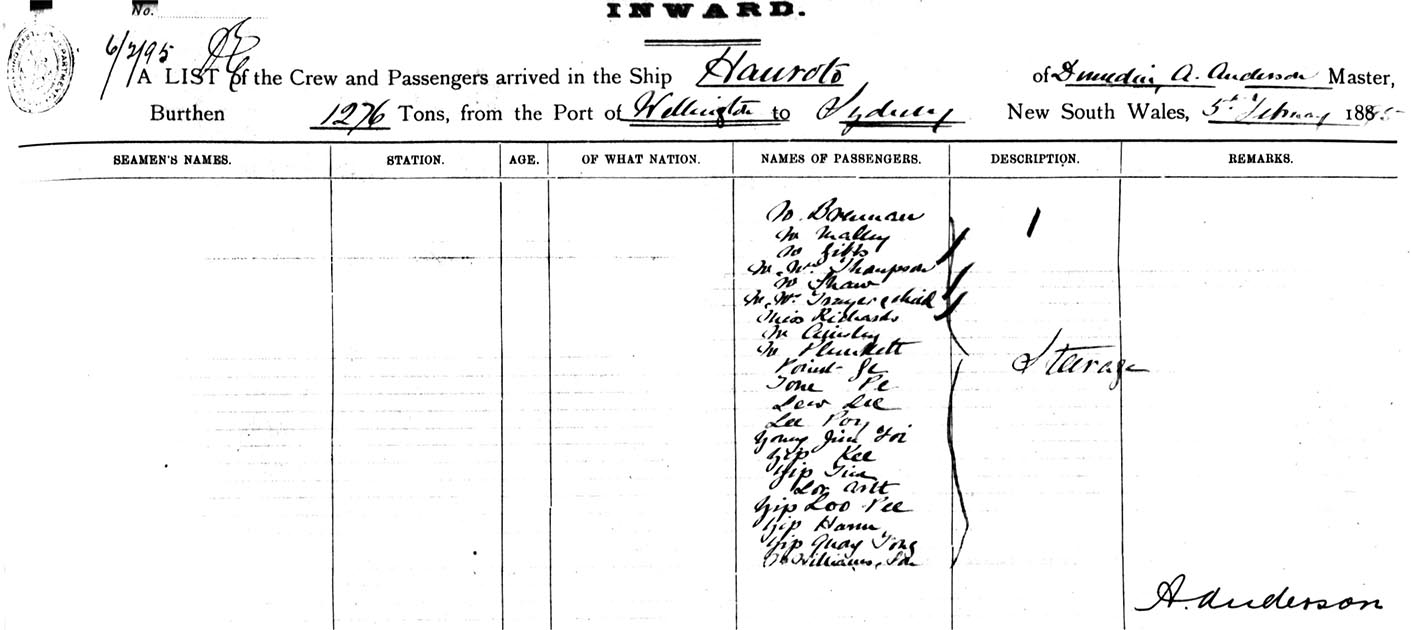 No.
INWARD.
6/2/95
A LIST of the Crew and Passengers arrived in the Ship Hauroto of Dunedin, A. Anderson Master,
Burthen 1276 Tons, from the Port of Wellington to Sydney New South Wales, 5th February 1895
SEAMEN'S NAMES. STATION. AGE. OF WHAT NATION. NAMES OF PASSENGERS. DESCRIPTION. REMARKS.
Mr Brennan
Mr Malley
Mr Gibbs
Mr Mrs Thompson
Mr Shaw
Mr Mrs & child
Miss Richards
Mr
Mr Plunkett
Steerage
Tone Pe
Lew Lee
Lee Poy
Young Jim Foi
Yip Kee
Yip
Loo
Yip Loo Pee
Yip Hann
Yip Quay Tong
Williams,
A. Anderson